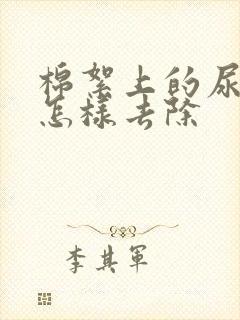 棉絮上的尿
怎樣去除
李其軍